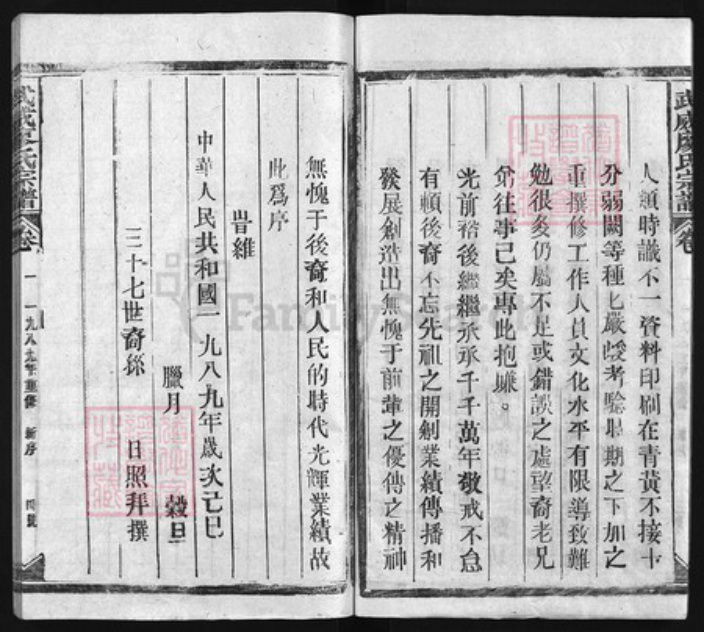 武威廖氏宗譜
卷
人類時識不一資料印刷在青黃不接十
分弱闕等種匕嚴峻考驗時期之下加之
重撰修工作人員文化水平有限導致難
勉很多仍屬不足或錯誤之處望裔老兄
弟往事己矣專此抱嫌。
光前裕後繼繼承承千千萬年敬戒不怠
有頼後裔不忘先祖之開創業績傳播和
發展創造出無愧于前輩之優傳之精神
無愧于後裔和人民的時代光輝業績故
此爲序
旹維
中華人民共和國一九八九年歲次己巳
臘月 穀旦
三十七世裔孫 日照拜撰
武威廖氏宗譜
卷一 一九八九年重修 新序 四號
FamilySearch